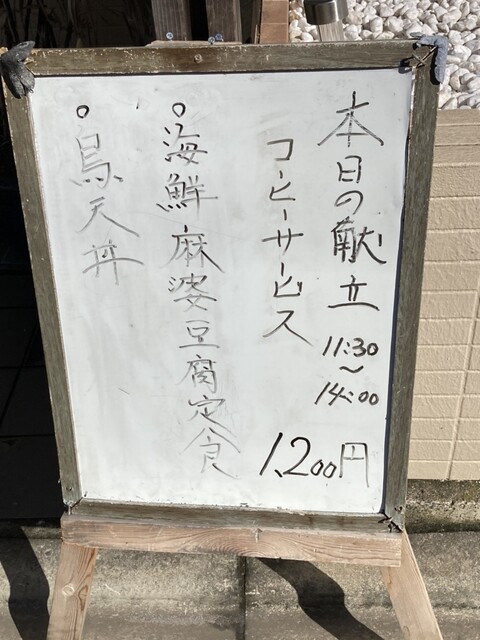 本日の献立
11:30
~
14:00
コーヒーサービス
1,200円
○海鮮麻婆豆腐定食
○鳥天丼